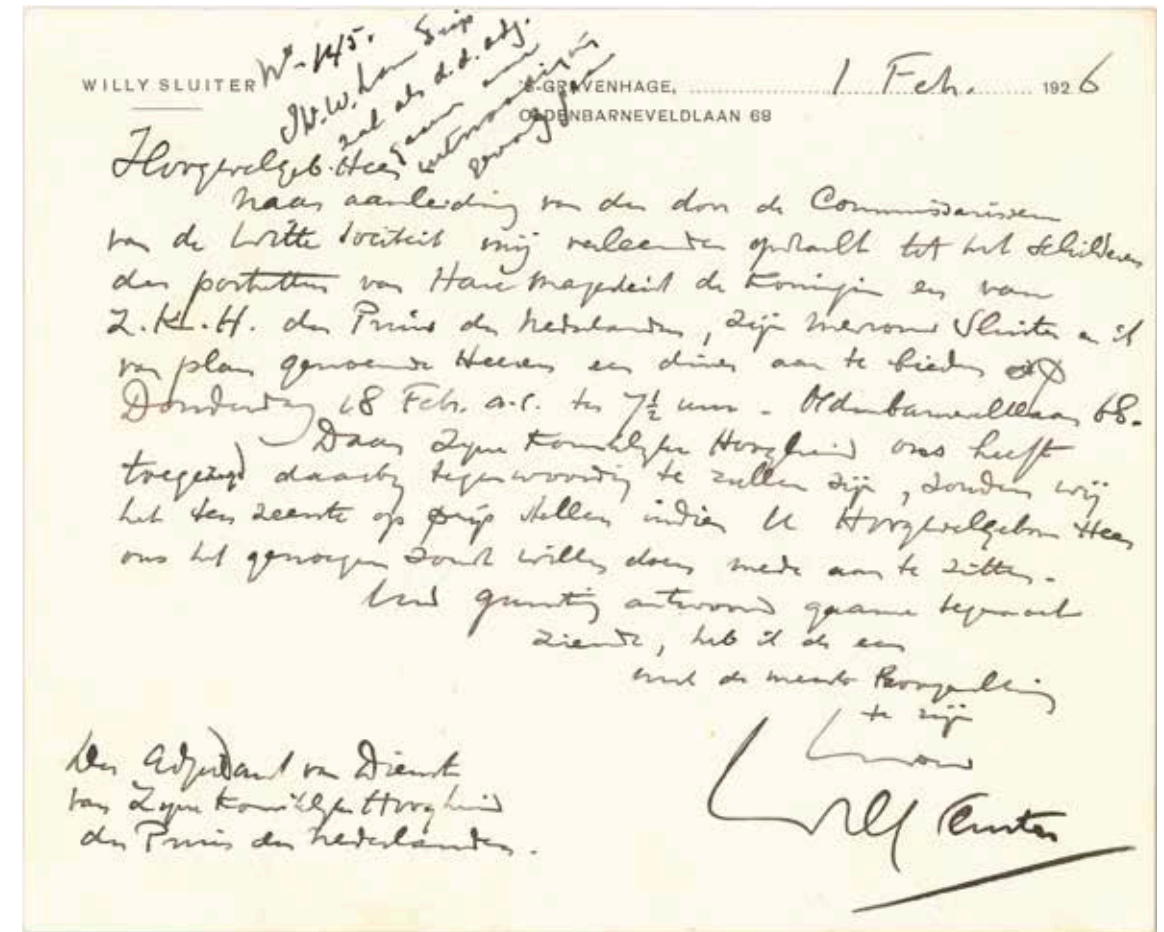 WILLY SLUITER
No 145.
Jhr. W. Laman Trip
zal als d.d. adj.
gaarne aan
uitnoodiging
gevolg geven
'S-GRAVENHAGE, 1 Feb. 1926
OLDENBARNEVELDLAAN 68
Hoogwelgeb. Heer
Naar aanleiding van den door de Commissarissen
van de Witte Sociteit mij verleenden opdracht tot het schilderen
der portretten van Hare Majesteit de Koningin en van
Z.K.H. den Prins der Nederlanden, zijn mevrouw Sluiter en ik
van plan genoemde Heeren een diner aan te bieden op
Donderdag 18 Feb. a.s. te 7½ uur - Oldenbarneveldlaan 68.
Daar Zijne Koninklijke Hoogheid ons heeft
toegezegd daarbij tegenwoordig te zullen zijn, zouden wij
het ten zeerste op prijs stellen indien U Hoogwelgeboren Heer
ons het genoegen zoudt willen doen mede aan te zitten.
Uw gunstig antwoord gaarne tegemoet
ziende, heb ik de eer
met de meeste Hoogachting
te zijn
Willy Sluiter
Den Adjudant van Dienst
van Zijne Koninklijke Hoogheid
den Prins der Nederlanden.